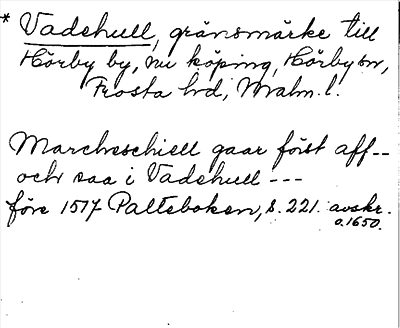 * Vadehull, gränsmärke till
Hörby by, nu köping, Hörby sn,
Frosta hd, Malm. l.
Marcheschiell gaar först aff --
och saa i Vadehull ---
före 1517 Palteboken, s. 221. avskr.
o. 1650.